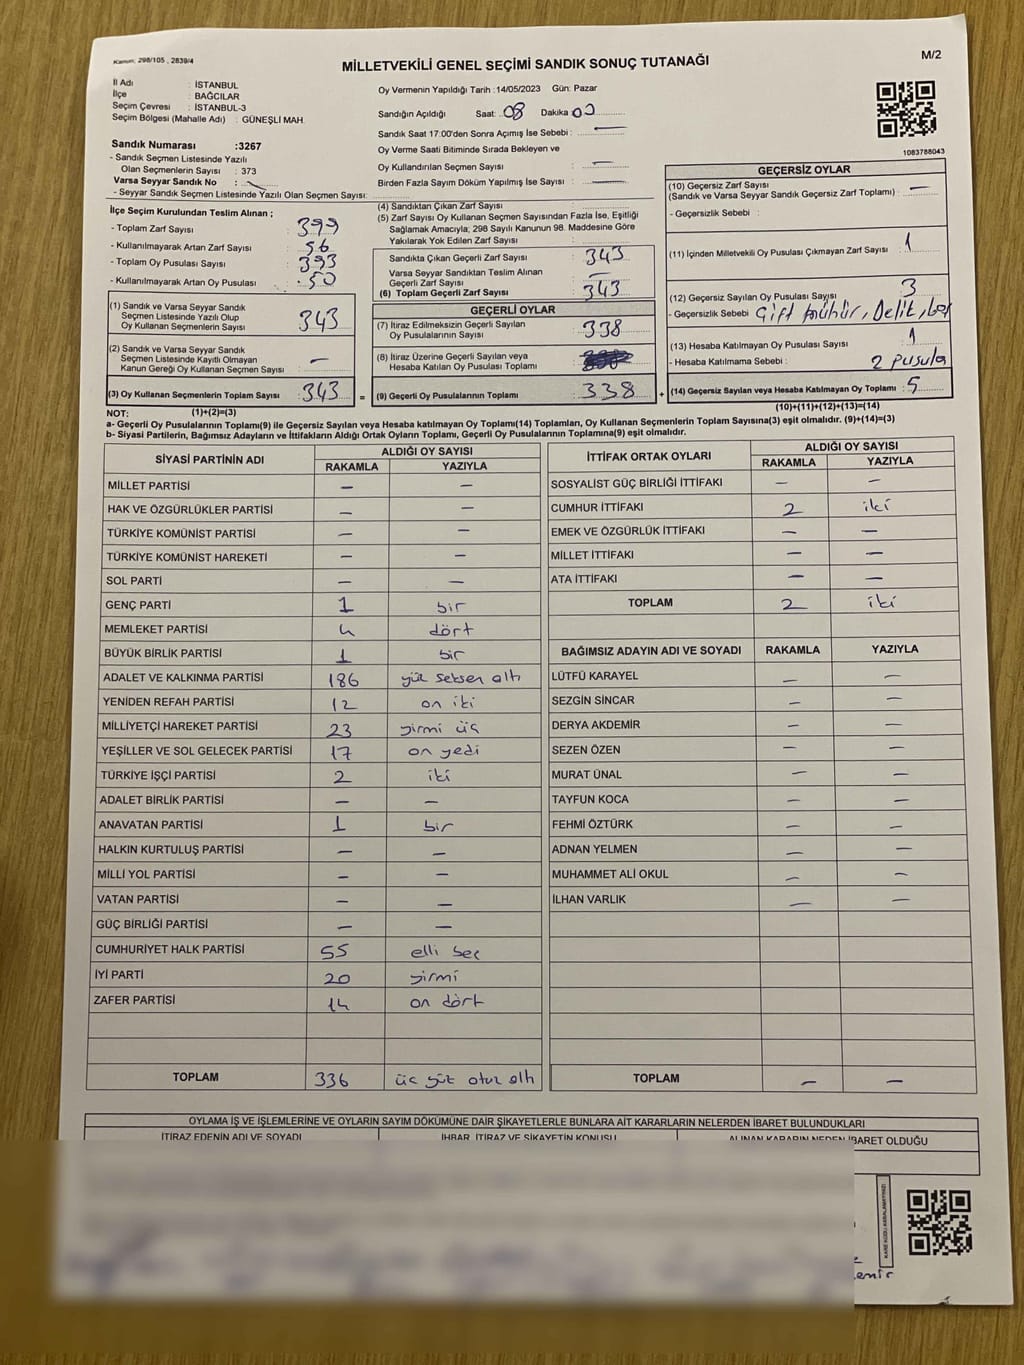 Kanun: 298/105 , 2839/4
M/2
MİLLETVEKİLİ GENEL SEÇİMİ SANDIK SONUÇ TUTANAĞI
İl Adı : İSTANBUL
İlçe : BAĞCILAR
Seçim Çevresi : İSTANBUL-3
Seçim Bölgesi (Mahalle Adı) : GÜNEŞLİ MAH.
Oy Vermenin Yapıldığı Tarih :14/05/2023 Gün: Pazar
Sandığın Açıldığı Saat: 08 Dakika: 00
Sandık Saat 17:00'den Sonra Açılmış İse Sebebi : —
Oy Verme Saati Bitiminde Sırada Bekleyen ve
Oy Kullandırılan Seçmen Sayısı : —
Birden Fazla Sayım Döküm Yapılmış İse Sayısı : —
1083788043
Sandık Numarası :3267
- Sandık Seçmen Listesinde Yazılı
Olan Seçmenlerin Sayısı : 373
Varsa Seyyar Sandık No :
- Seyyar Sandık Seçmen Listesinde Yazılı Olan Seçmen Sayısı:
İlçe Seçim Kurulundan Teslim Alınan ;
- Toplam Zarf Sayısı : 399
- Kullanılmayarak Artan Zarf Sayısı : 56
- Toplam Oy Pusulası Sayısı : 393
- Kullanılmayarak Artan Oy Pusulası : 50
(1) Sandık ve Varsa Seyyar Sandık
Seçmen Listesinde Yazılı Olup
Oy Kullanan Seçmenlerin Sayısı : 343
(2) Sandık ve Varsa Seyyar Sandık
Seçmen Listesinde Kayıtlı Olmayan
Kanun Gereği Oy Kullanan Seçmen Sayısı : —
(3) Oy Kullanan Seçmenlerin Toplam Sayısı : 343
(1)+(2)=(3)
(4) Sandıktan Çıkan Zarf Sayısı :
(5) Zarf Sayısı Oy Kullanan Seçmen Sayısından Fazla İse, Eşitliği
Sağlamak Amacıyla; 298 Sayılı Kanunun 98. Maddesine Göre
Yakılarak Yok Edilen Zarf Sayısı :
Sandıkta Çıkan Geçerli Zarf Sayısı : 343
Varsa Seyyar Sandıktan Teslim Alınan
Geçerli Zarf Sayısı : —
(6) Toplam Geçerli Zarf Sayısı : 343
GEÇERLİ OYLAR
(7) İtiraz Edilmeksizin Geçerli Sayılan
Oy Pusulalarının Sayısı : 338
(8) İtiraz Üzerine Geçerli Sayılan veya
Hesaba Katılan Oy Pusulası Toplamı :
= (9) Geçerli Oy Pusulalarının Toplamı : 338
GEÇERSİZ OYLAR
(10) Geçersiz Zarf Sayısı
(Sandık ve Varsa Seyyar Sandık Geçersiz Zarf Toplamı) : —
- Geçersizlik Sebebi :
(11) İçinden Milletvekili Oy Pusulası Çıkmayan Zarf Sayısı : 1
(12) Geçersiz Sayılan Oy Pusulası Sayısı : 3
- Geçersizlik Sebebi : Çift mühür, Delik, boş
(13) Hesaba Katılmayan Oy Pusulası Sayısı : 1
- Hesaba Katılmama Sebebi : 2 pusula
+ (14) Geçersiz Sayılan veya Hesaba Katılmayan Oy Toplamı : 5
(10)+(11)+(12)+(13)=(14)
NOT:
a- Geçerli Oy Pusulalarının Toplamı(9) ile Geçersiz Sayılan veya Hesaba katılmayan Oy Toplamı(14) Toplamları, Oy Kullanan Seçmenlerin Toplam Sayısına(3) eşit olmalıdır. (9)+(14)=(3)
b- Siyasi Partilerin, Bağımsız Adayların ve İttifakların Aldığı Ortak Oyların Toplamı, Geçerli Oy Pusulalarının Toplamına(9) eşit olmalıdır.
SİYASİ PARTİNİN ADI ALDIĞI OY SAYISI
RAKAMLA YAZIYLA
MİLLET PARTİSİ — —
HAK VE ÖZGÜRLÜKLER PARTİSİ — —
TÜRKİYE KOMÜNİST PARTİSİ — —
TÜRKİYE KOMÜNİST HAREKETİ — —
SOL PARTİ — —
GENÇ PARTİ 1 bir
MEMLEKET PARTİSİ 4 dört
BÜYÜK BİRLİK PARTİSİ 1 bir
ADALET VE KALKINMA PARTİSİ 186 yüz seksen altı
YENİDEN REFAH PARTİSİ 12 on iki
MİLLİYETÇİ HAREKET PARTİSİ 23 yirmi üç
YEŞİLLER VE SOL GELECEK PARTİSİ 17 on yedi
TÜRKİYE İŞÇİ PARTİSİ 2 iki
ADALET BİRLİK PARTİSİ — —
ANAVATAN PARTİSİ 1 bir
HALKIN KURTULUŞ PARTİSİ — —
MİLLİ YOL PARTİSİ — —
VATAN PARTİSİ — —
GÜÇ BİRLİĞİ PARTİSİ — —
CUMHURİYET HALK PARTİSİ 55 elli beş
İYİ PARTİ 20 yirmi
ZAFER PARTİSİ 14 on dört
TOPLAM 336 üç yüz otuz altı
İTTİFAK ORTAK OYLARI ALDIĞI OY SAYISI
RAKAMLA YAZIYLA
SOSYALİST GÜÇ BİRLİĞİ İTTİFAKI — —
CUMHUR İTTİFAKI 2 iki
EMEK VE ÖZGÜRLÜK İTTİFAKI — —
MİLLET İTTİFAKI — —
ATA İTTİFAKI — —
TOPLAM 2 iki
BAĞIMSIZ ADAYIN ADI VE SOYADI RAKAMLA YAZIYLA
LÜTFÜ KARAYEL — —
SEZGİN SİNCAR — —
DERYA AKDEMİR — —
SEZEN ÖZEN — —
MURAT ÜNAL — —
TAYFUN KOCA — —
FEHMİ ÖZTÜRK — —
ADNAN YELMEN — —
MUHAMMET ALİ OKUL — —
İLHAN VARLIK — —
TOPLAM — —
OYLAMA İŞ VE İŞLEMLERİNE VE OYLARIN SAYIM DÖKÜMÜNE DAİR ŞİKAYETLERLE BUNLARA AİT KARARLARIN NELERDEN İBARET BULUNDUKLARI
İTİRAZ EDENİN ADI VE SOYADI İHBAR, İTİRAZ VE ŞİKAYETİN KONUSU ALINAN KARARIN NEDEN İBARET OLDUĞU